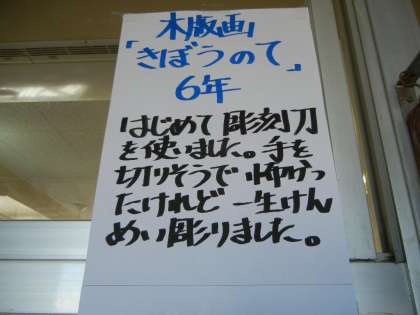 木版画
「きぼうのて」
6年
はじめて彫刻刀
を使いました。手を
切りそうで怖かっ
たけれど一生けん
めい彫りました。